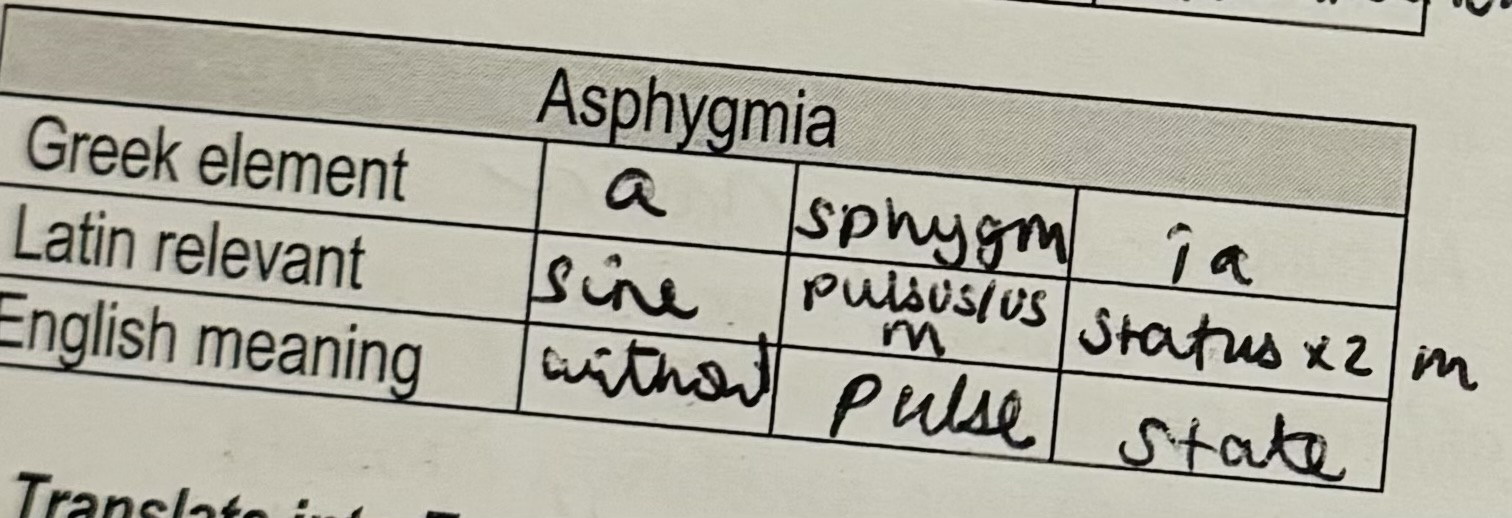 Asphygmia
Greek element a sphygm ia
Latin relevant sine pulsus/us m status x2 m
English meaning without pulse state
Translate into